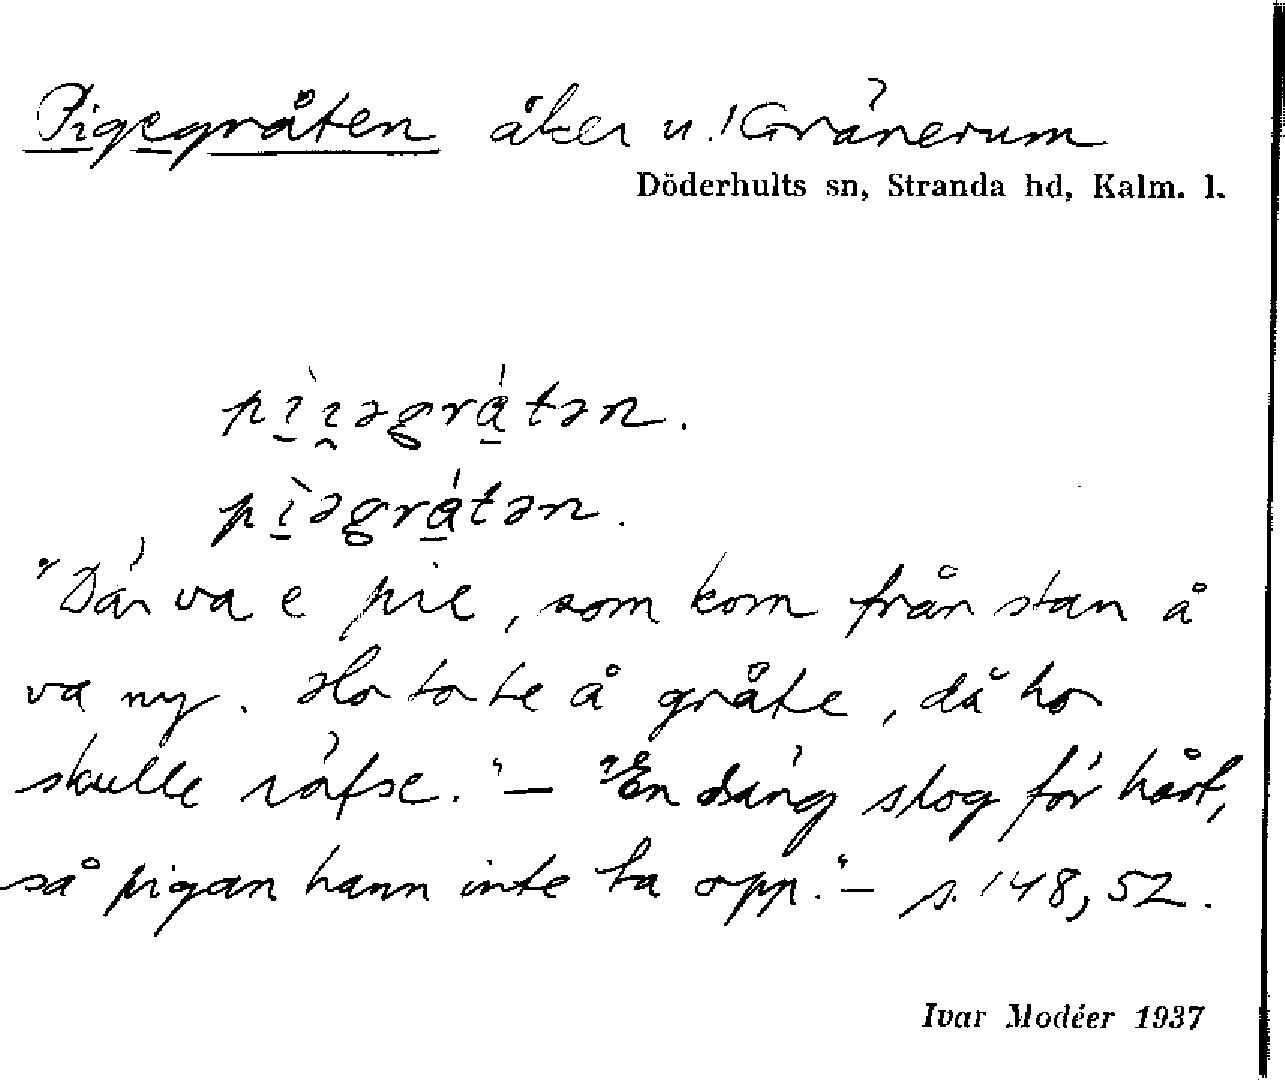 Pigegråten åker u. 1 Gränerum
Döderhults sn, Stranda hd, Kalm. l.
pìi̯əgrátən.
pìəgrátən.
"Där va e pie, som kom från stan å
va ny. Ho to te å gråte, då ho
skulle räfse." — "En dräng slog för hårt,
så pigan hann inte ta opp." — s. 148, 52.
Ivar Modéer 1937